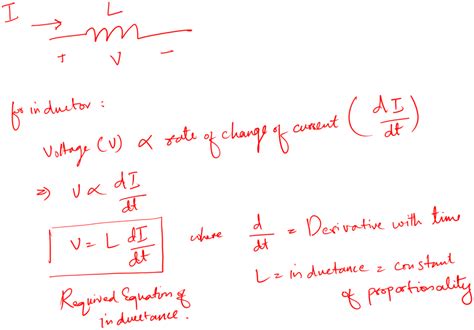 I L
+ V -
for inductor :
Voltage (V) ∝ rate of change of current (dI/dt)
⇒ V ∝ dI/dt
V = L dI/dt where d/dt = Derivative with time
L = inductance = constant
of proportionality
Required Equation of
inductance.